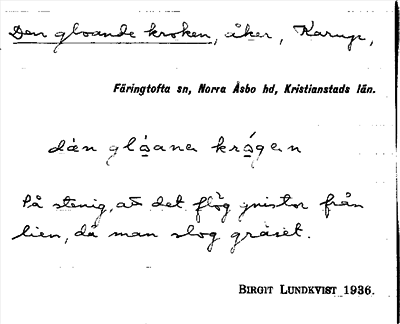 Den gloande kroken, åker, Karup,
Färingtofta sn, Norra Åsbo hd, Kristianstads län.
dæ̀n glå̀ana krǻgen
Så stenig, att det flög gnistor från
lien, då man slog gräset.
BIRGIT LUNDKVIST 1936.